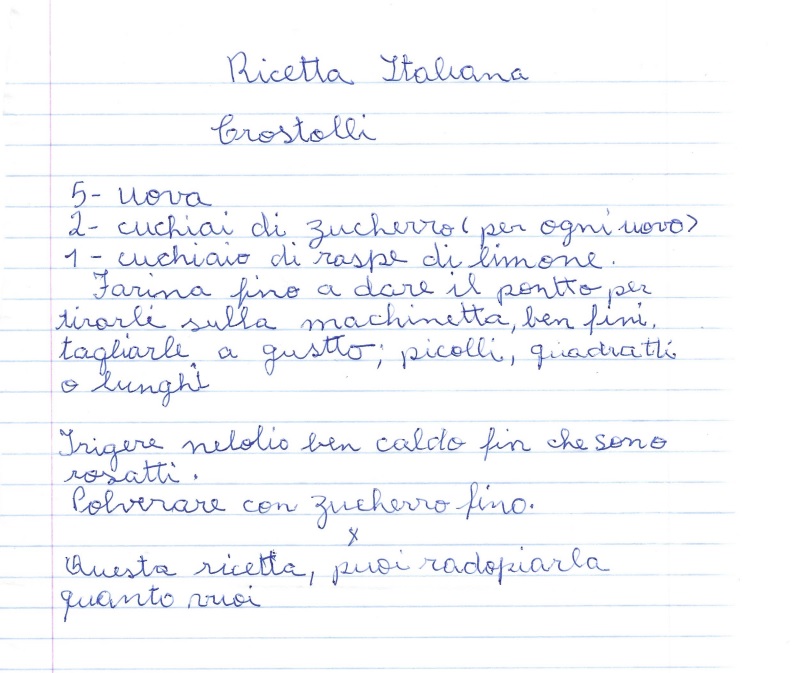 Ricetta Italiana
Crostolli
5- uova
2- cuchiai di zucherro (per ogni uovo)
1- cuchiaio di raspe di limone.
Farina fino a dare il pontto per
tirarle sulla machinetta, ben fini,
tagliarle, a gustto; picolli, quadratti
o lunghi
Frigere nelolio ben caldo fin che sono
rosatti.
Polverare con zucherro fino.
x
Questa ricetta, puoi radopiarla
quanto vuoi